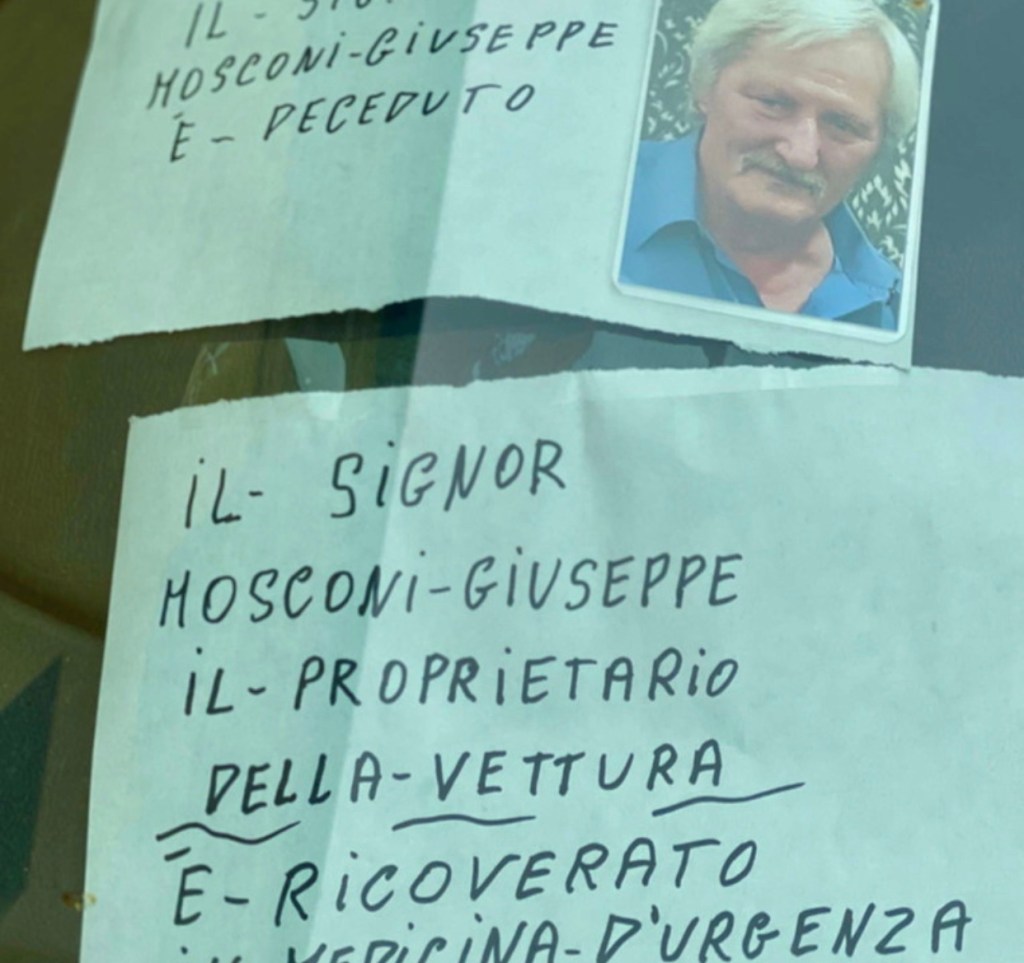 IL-
MOSCONi-GiUSEPPE
È - DECEDUTO
iL- SiGNOR
MOSCONi-GiUSEPPE
iL- PROPRiETARiO
DELLA-VETTURA
È-RiCOVERATO
iN MEDiCiNA-D'URGENZA